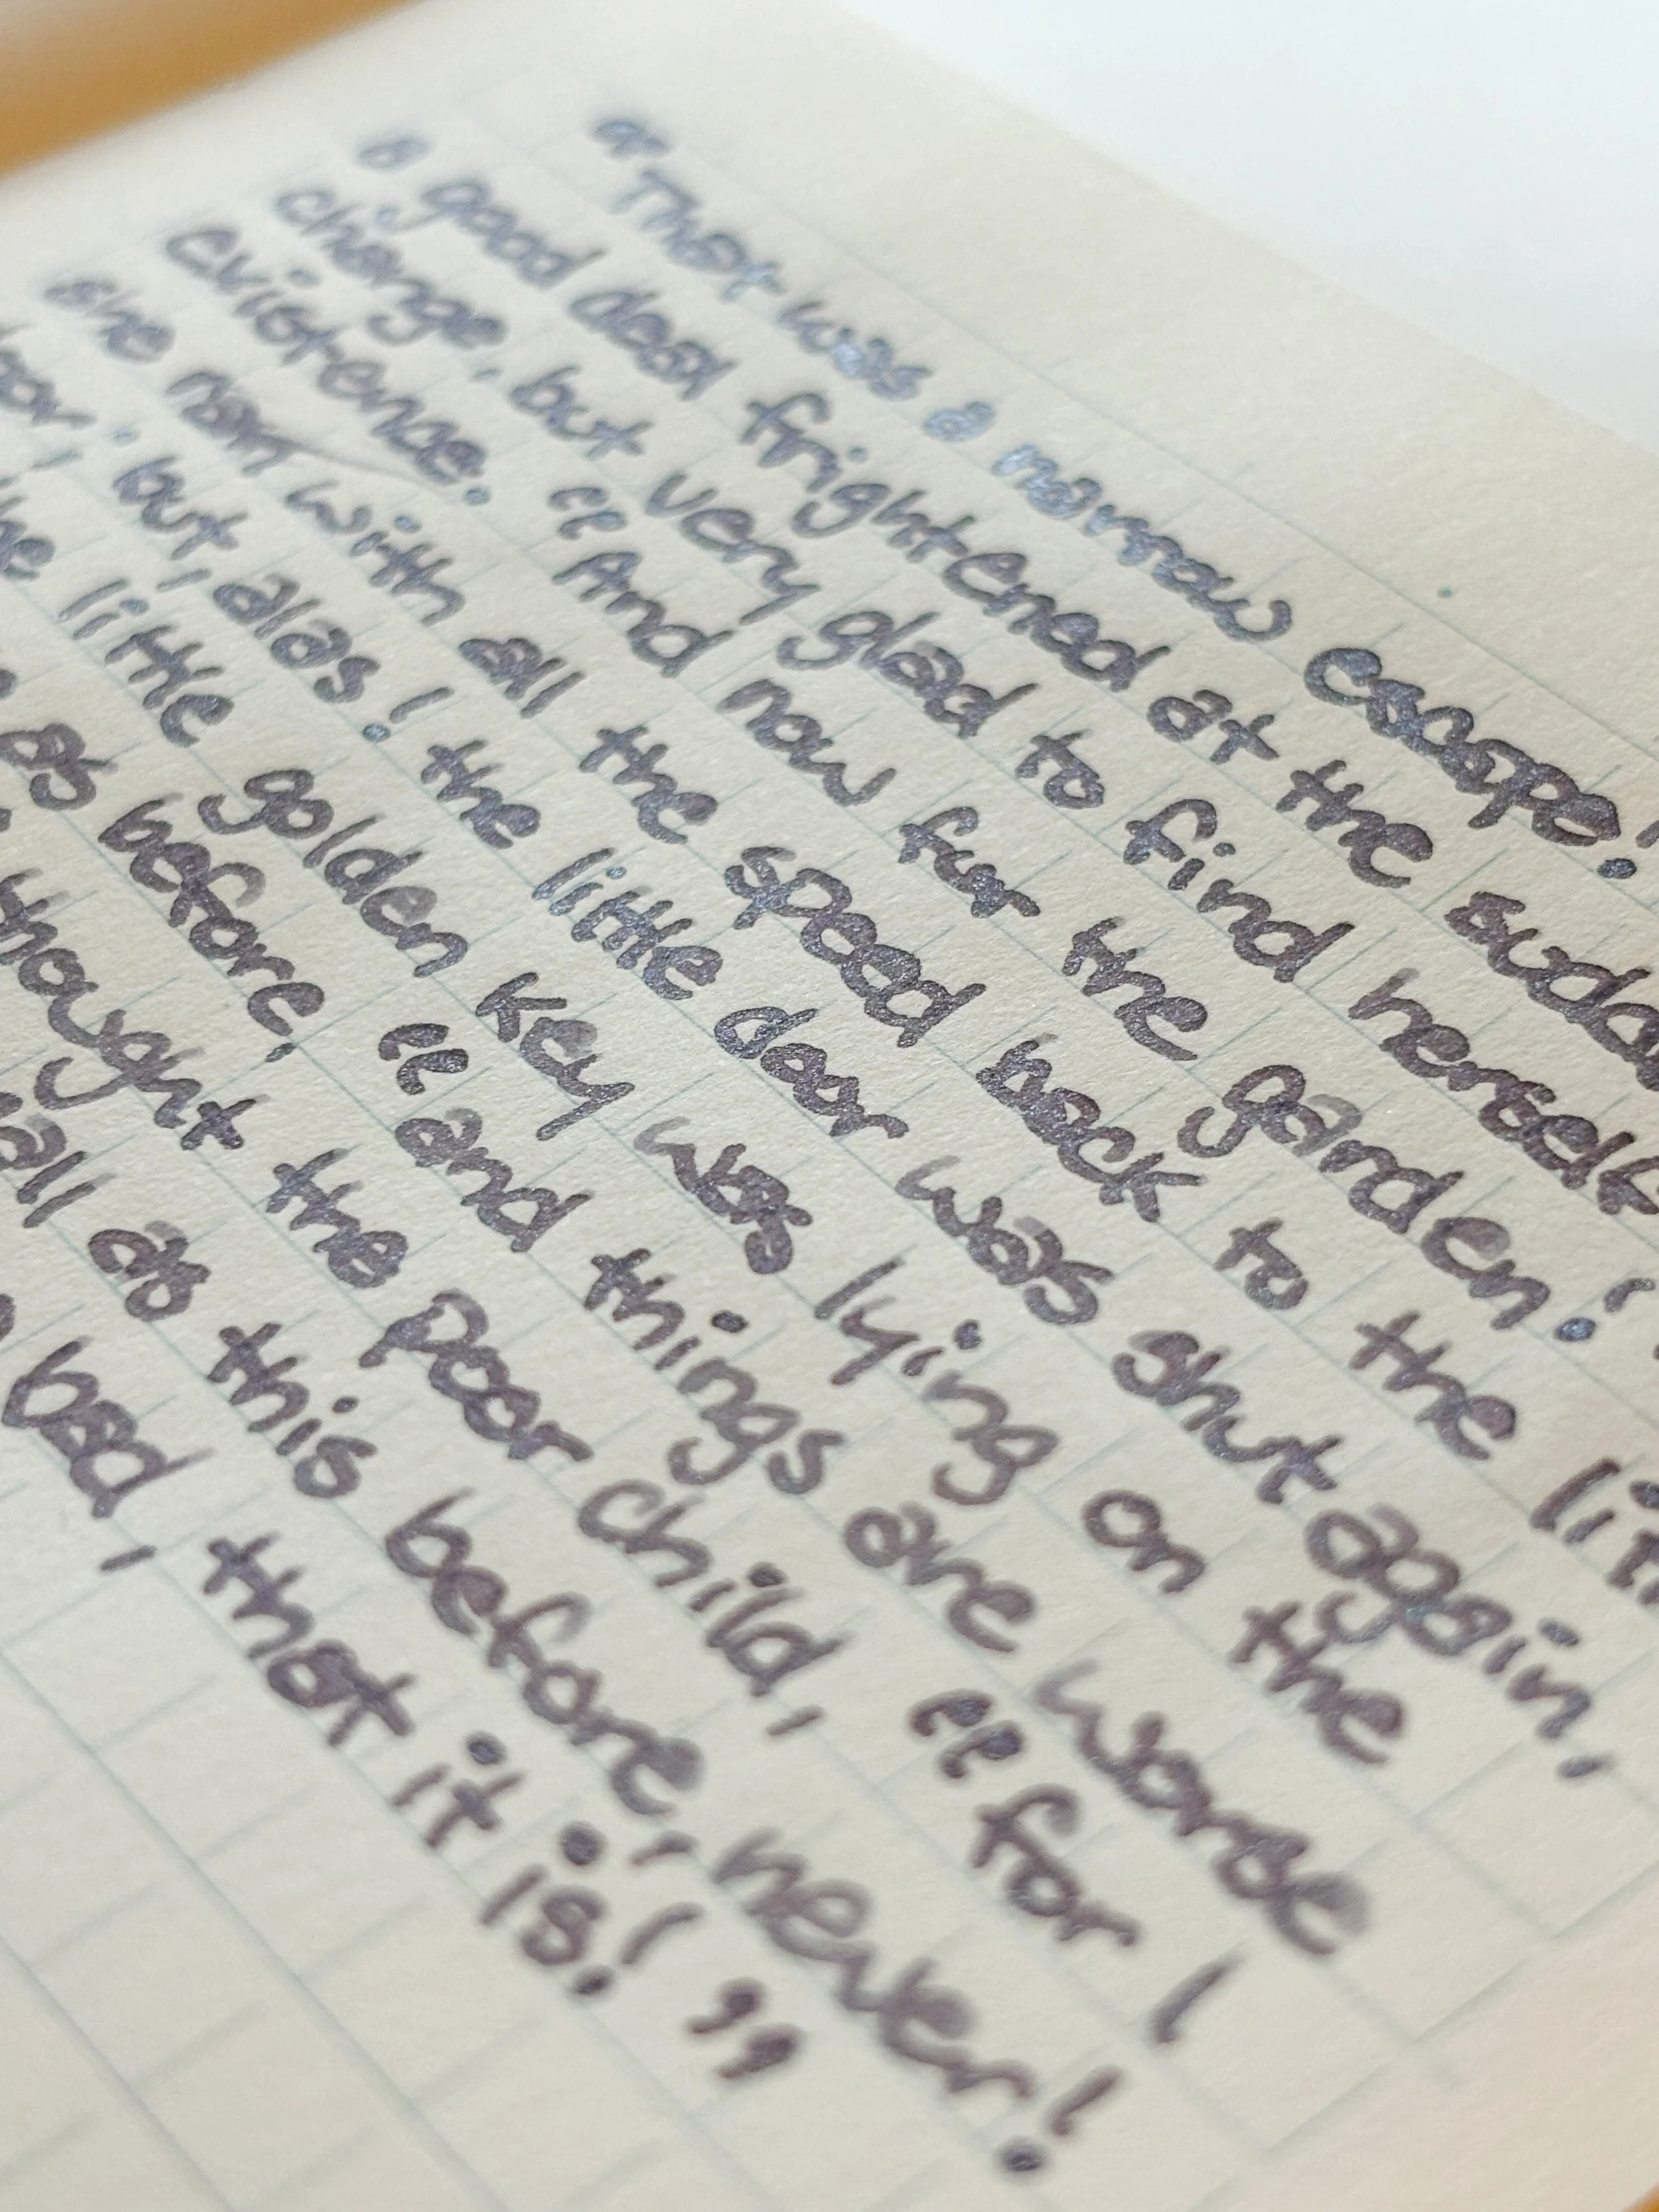 “That was a narrow escape!
a good deal frightened at the sudde
change, but very glad to find herself
existence. “And now for the garden!
she ran with all the speed back to the litt
oor; but, alas! the little door was shut again,
he little golden key was lying on the
as before, “and things are worse
thought the poor child, “for I
all as this before, never!
bad, that it is!”